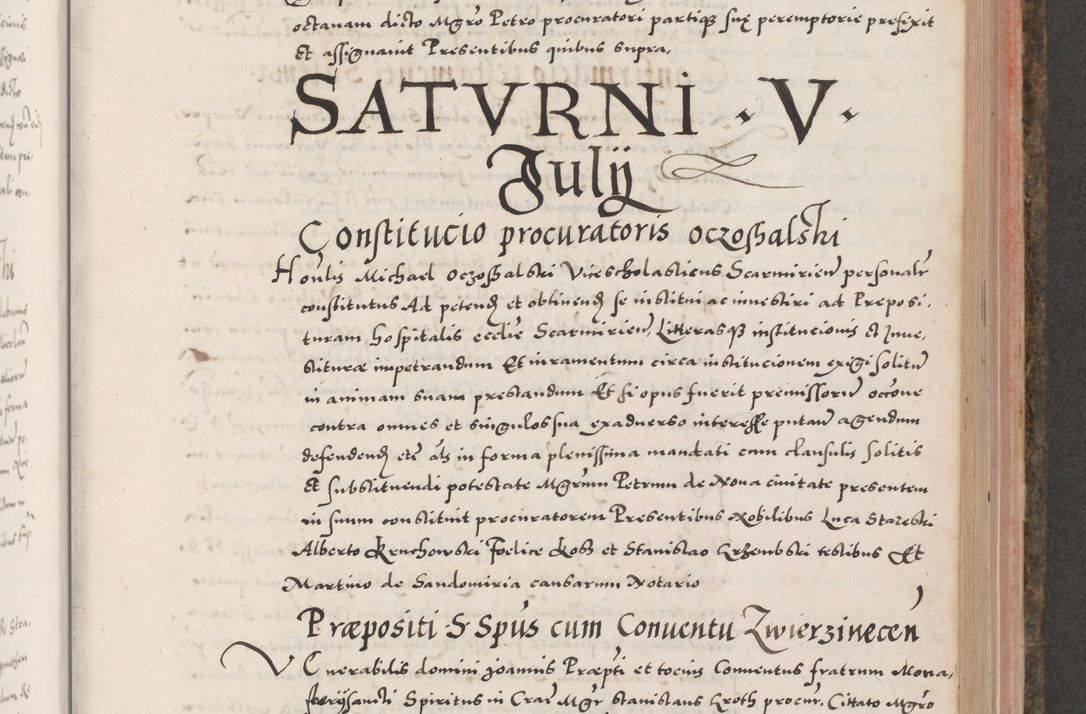 octauam dicto Mgro Petro procuratori partiq3 suę peremptorie prefixit
Et assignauit Presentibus quibus supra.
SATVRNI · V ·
Julij
Constitucio procuratoris oczoshalski
Honlis Michael oczoshalski Vicescholasticus Scarmirien personalr
constitutus Ad petend et obtinend se institui ac inuestiri ad Preposi-
turam hospitalis ecclie Scarmirien, Litterasq3 institucionis Et Inue-
stiturae impetrandum Et iuramentum circa institucionem exigi solitu
in animam suam prestandum Et si opus fuerit premissoru occone
contra omnes et singulos sua exaduerso interesse putan agendum
defendend etc als in forma plenissima mandati cum clausulis solitis
Et substituendi potestate Mgrum Petrum de Noua ciuitate presentem
in suum constituit procuratorem Presentibus Nobilibus Luca Stareski
Alberto Kruchowski Foelice Kosz et Stanislao Krzembski testibus Et
Martino de Sandomiria causarum Notario
Præpositi S Spus cum Conuentu Zwierzinecen
Venerabilis domini Joannis Præpti et tocius Conuentus fratrum Mona-
sterij sancti Spiritus in Crac Mgr Stanislaus Kroth procur. Cittato Mgro